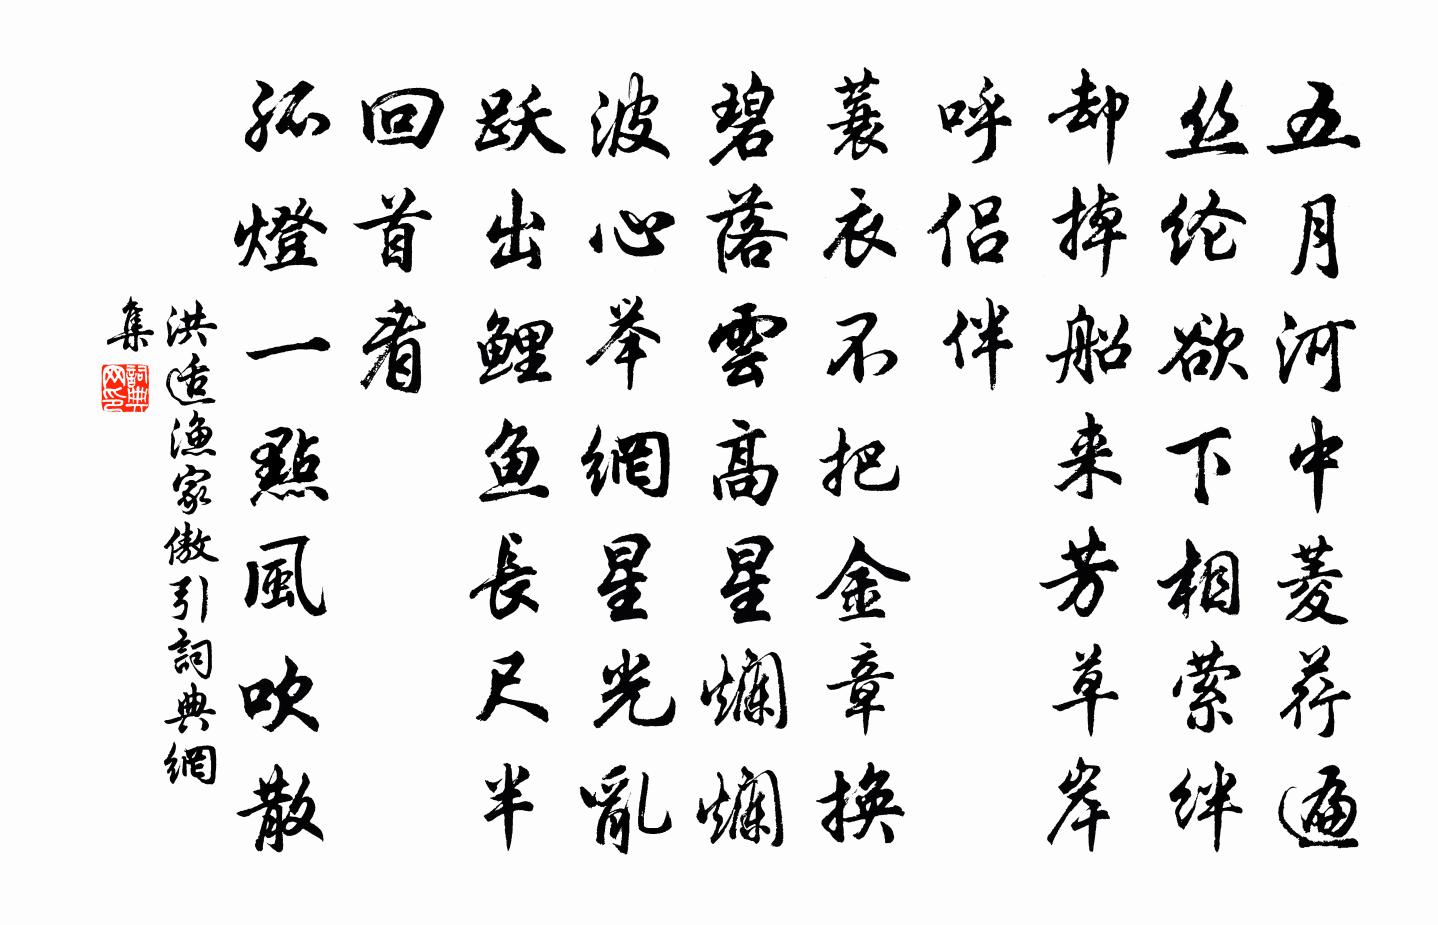 五月河中菱荇遍
丝纶欲下相萦绊
却掉船来芳草岸
呼侣伴
蓑衣不把金章换
碧落雲高星爛爛
波心举網星光亂
跃出鲤鱼長尺半
回首看
孤燈一點風吹散
洪适漁家傲引詞典網
集
詞典
网印